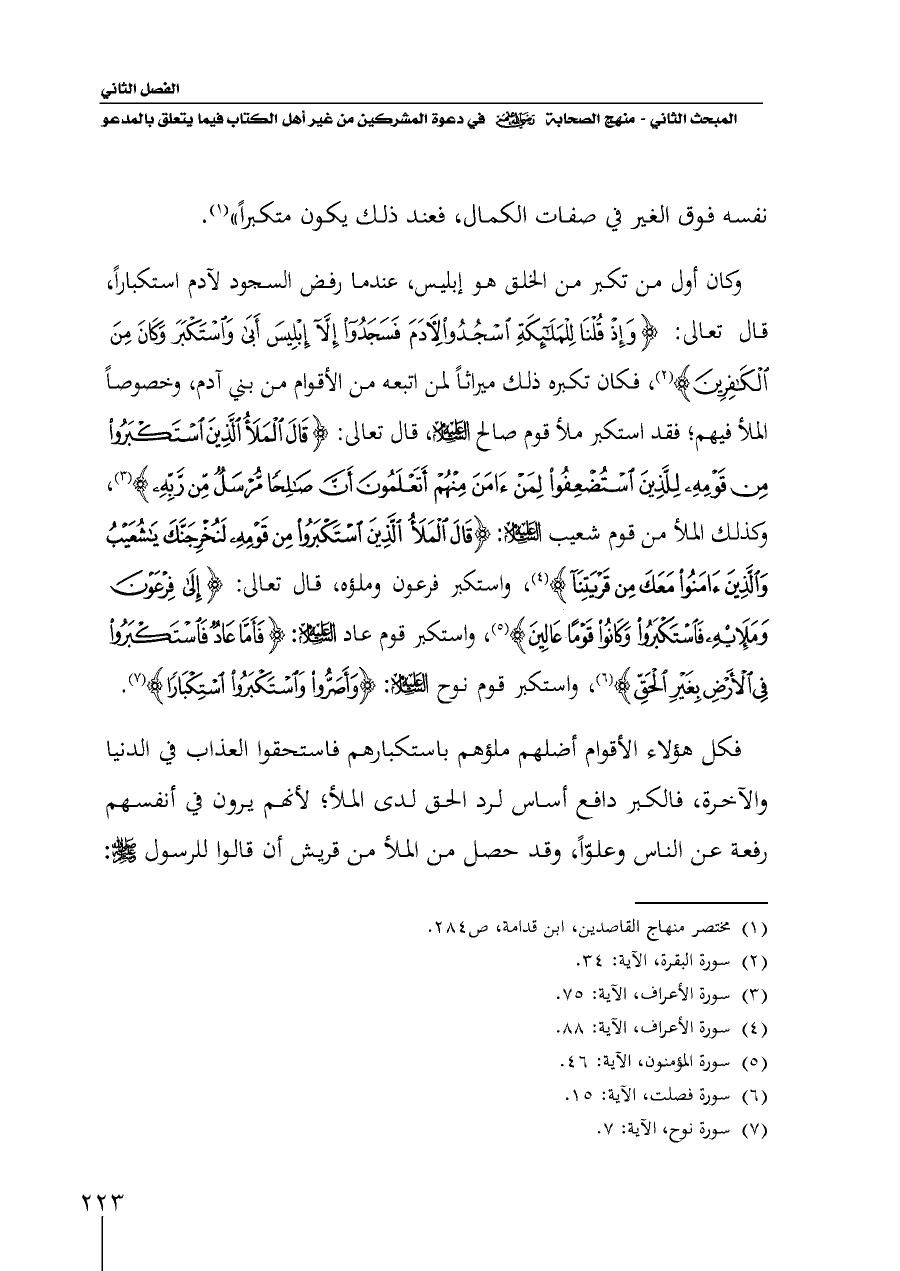 الفصل الثاني
المبحث الثاني - منهج الصحابة رضي الله عنهم في دعوة المشركين من غير أهل الكتاب فيما يتعلق بالمدعو
نفسه فوق الغير في صفات الكمال، فعند ذلك يكون متكبراً»(١).
وكان أول من تكبر من الخلق هو إبليس، عندما رفض السجود لآدم استكباراً،
قال تعالى: ﴿وَإِذْ قُلْنَا لِلْمَلَٰٓئِكَةِ ٱسْجُدُوا۟ لِـَٔادَمَ فَسَجَدُوٓا۟ إِلَّآ إِبْلِيسَ أَبَىٰ وَٱسْتَكْبَرَ وَكَانَ مِنَ
ٱلْكَٰفِرِينَ﴾(٢)، فكان تكبره ذلك ميراثاً لمن اتبعه من الأقوام من بني آدم، وخصوصاً
الملأ فيهم؛ فقد استكبر ملأ قوم صالح عليه السلام، قال تعالى: ﴿قَالَ ٱلْمَلَأُ ٱلَّذِينَ ٱسْتَكْبَرُوا۟
مِن قَوْمِهِۦ لِلَّذِينَ ٱسْتُضْعِفُوا۟ لِمَنْ ءَامَنَ مِنْهُمْ أَتَعْلَمُونَ أَنَّ صَٰلِحًا مُّرْسَلٌ مِّن رَّبِّهِۦ﴾(٣)،
وكذلك الملأ من قوم شعيب عليه السلام: ﴿قَالَ ٱلْمَلَأُ ٱلَّذِينَ ٱسْتَكْبَرُوا۟ مِن قَوْمِهِۦ لَنُخْرِجَنَّكَ يَٰشُعَيْبُ
وَٱلَّذِينَ ءَامَنُوا۟ مَعَكَ مِن قَرْيَتِنَآ﴾(٤)، واستكبر فرعون وملؤه، قال تعالى: ﴿إِلَىٰ فِرْعَوْنَ
وَمَلَإِي۟هِۦ فَٱسْتَكْبَرُوا۟ وَكَانُوا۟ قَوْمًا عَالِينَ﴾(٥)، واستكبر قوم عاد عليه السلام: ﴿فَأَمَّا عَادٌ فَٱسْتَكْبَرُوا۟
فِى ٱلْأَرْضِ بِغَيْرِ ٱلْحَقِّ﴾(٦)، واستكبر قوم نوح عليه السلام: ﴿وَأَصَرُّوا۟ وَٱسْتَكْبَرُوا۟ ٱسْتِكْبَارًا﴾(٧).
فكل هؤلاء الأقوام أضلهم ملؤهم باستكبارهم فاستحقوا العذاب في الدنيا
والآخرة، فالكبر دافع أساس لرد الحق لدى الملأ؛ لأنهم يرون في أنفسهم
رفعة عن الناس وعلوّاً، وقد حصل من الملأ من قريش أن قالوا للرسول ﷺ:
(١) مختصر منهاج القاصدين، ابن قدامة، ص٢٨٤.
(٢) سورة البقرة، الآية: ٣٤.
(٣) سورة الأعراف، الآية: ٧٥.
(٤) سورة الأعراف، الآية: ٨٨.
(٥) سورة المؤمنون، الآية: ٤٦.
(٦) سورة فصلت، الآية: ١٥.
(٧) سورة نوح، الآية: ٧.
٢٢٣